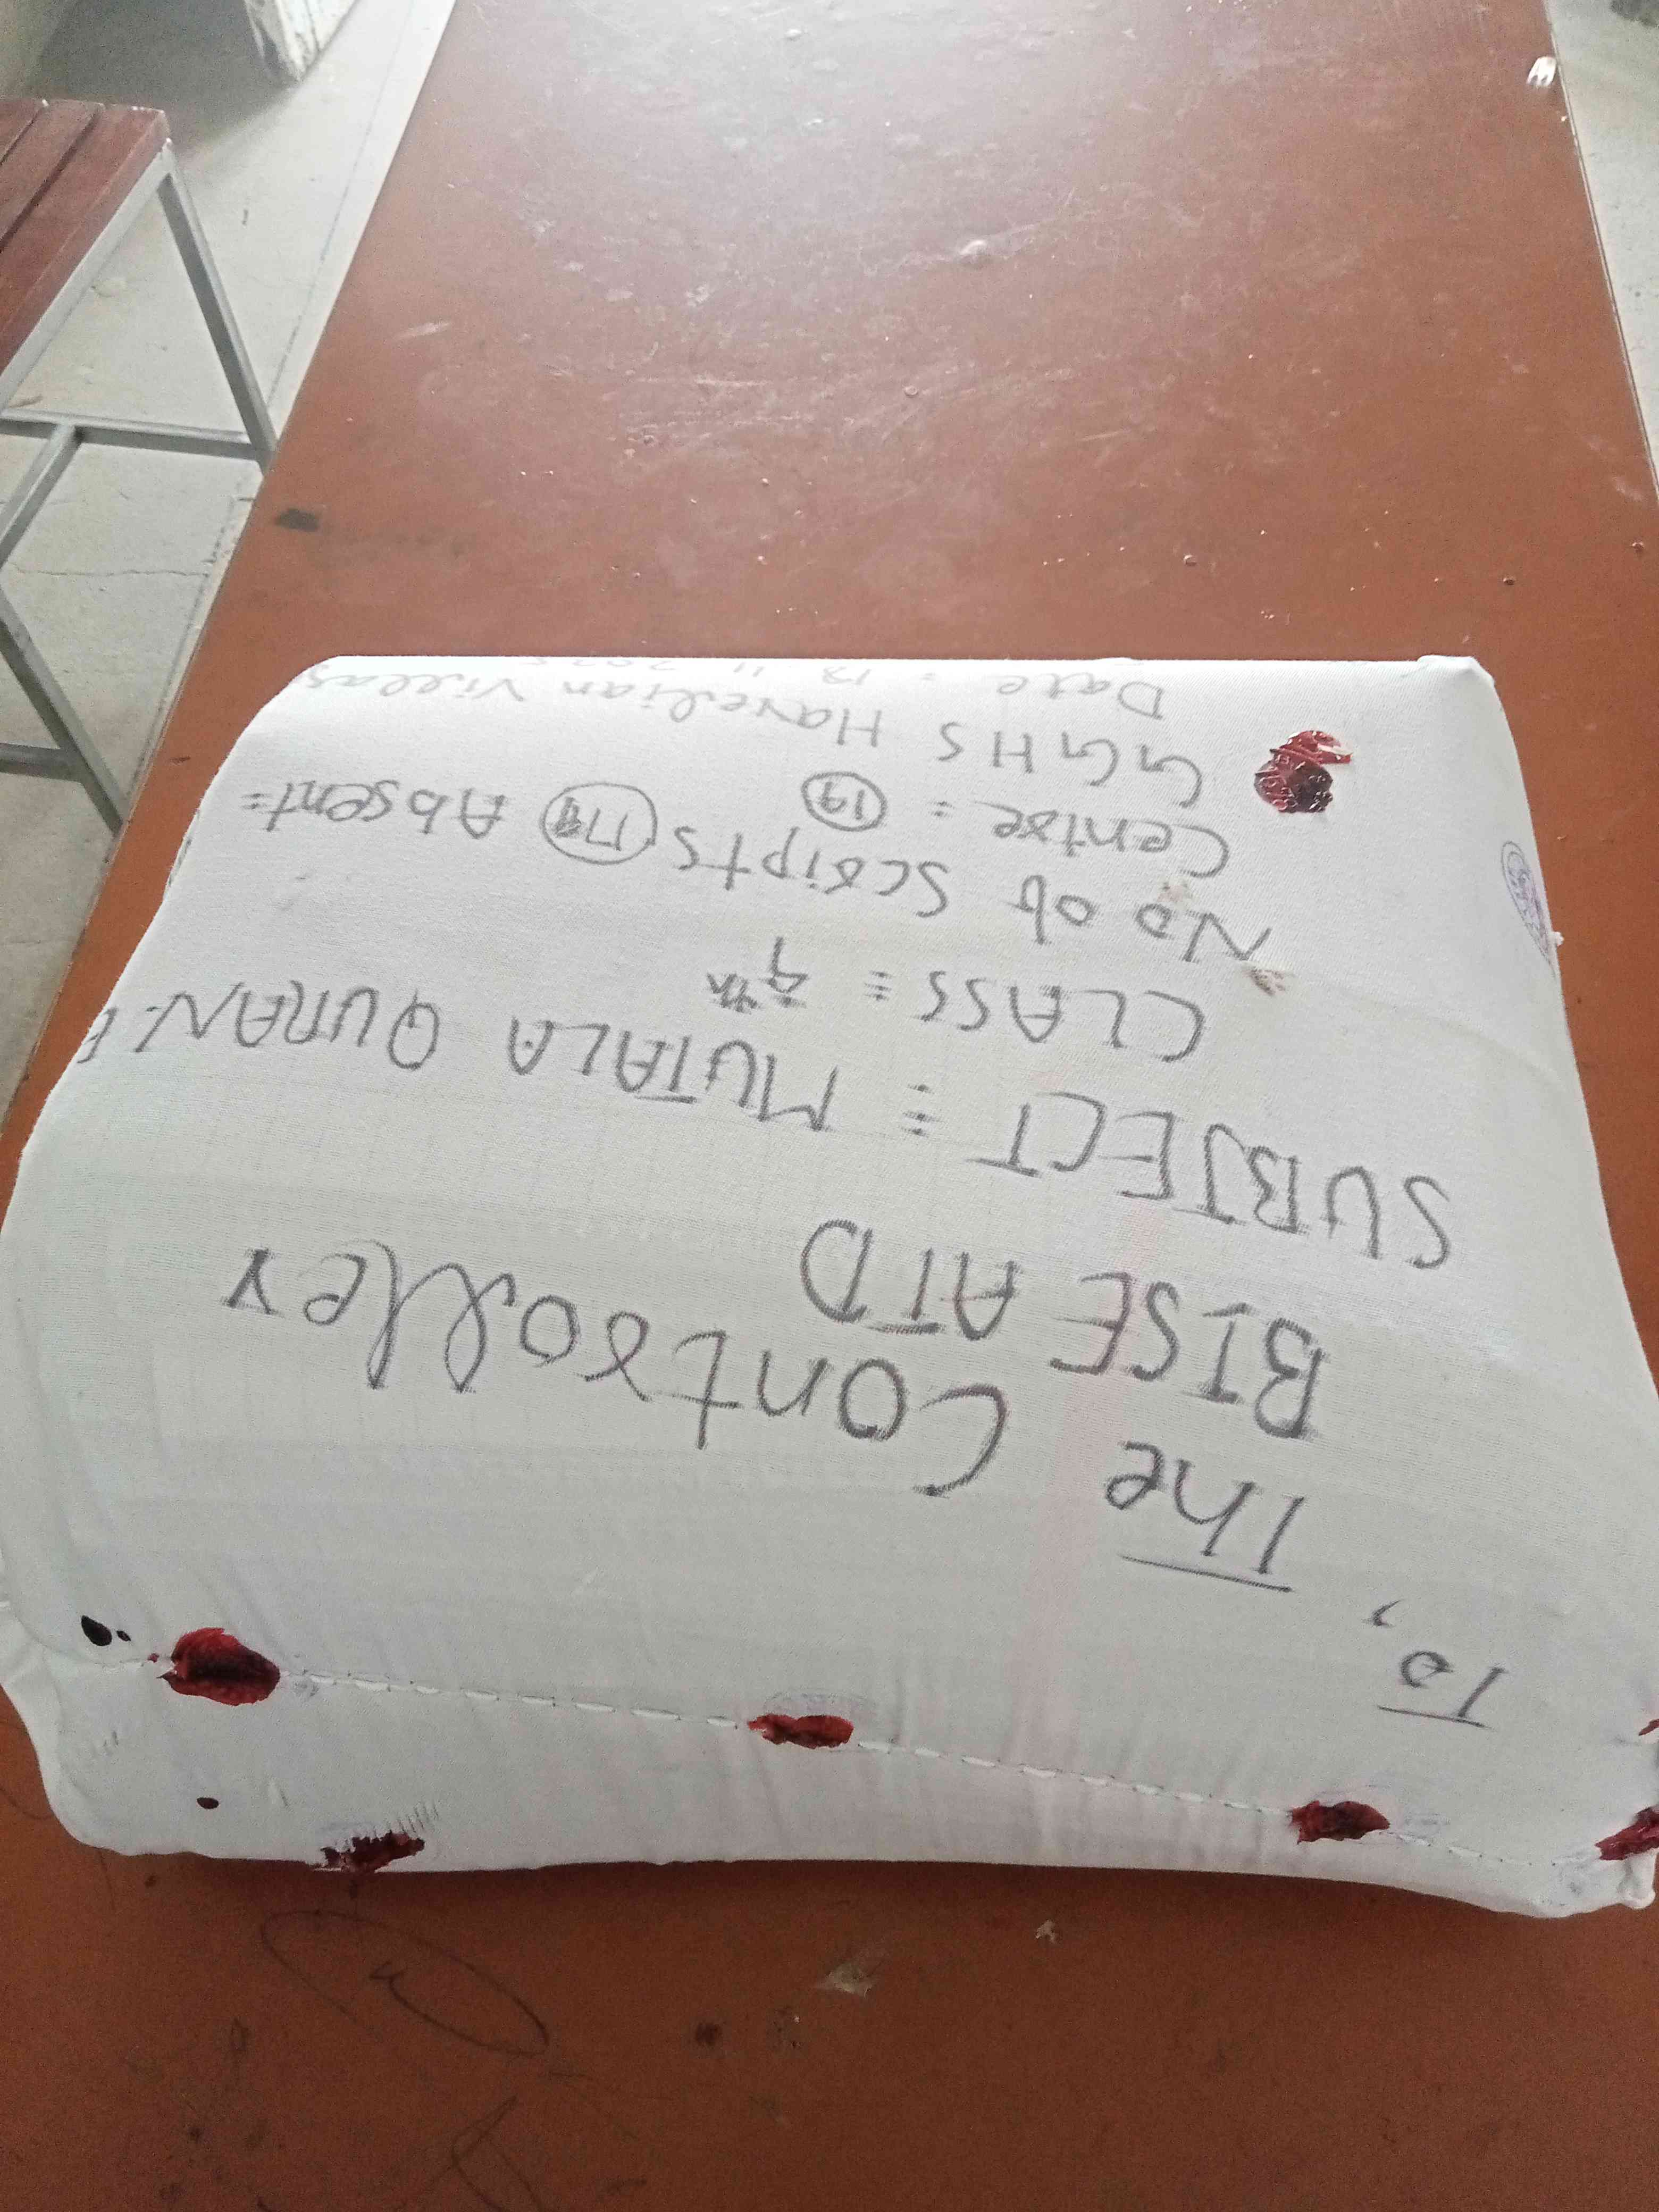 To,
The Controller
BISE ATD
SUBJECT = MUTALA QURAN.E
CLASS = 9th
No of Scripts 179 Absent =
Centre = 19
GGHS Havelian Villag
Date =